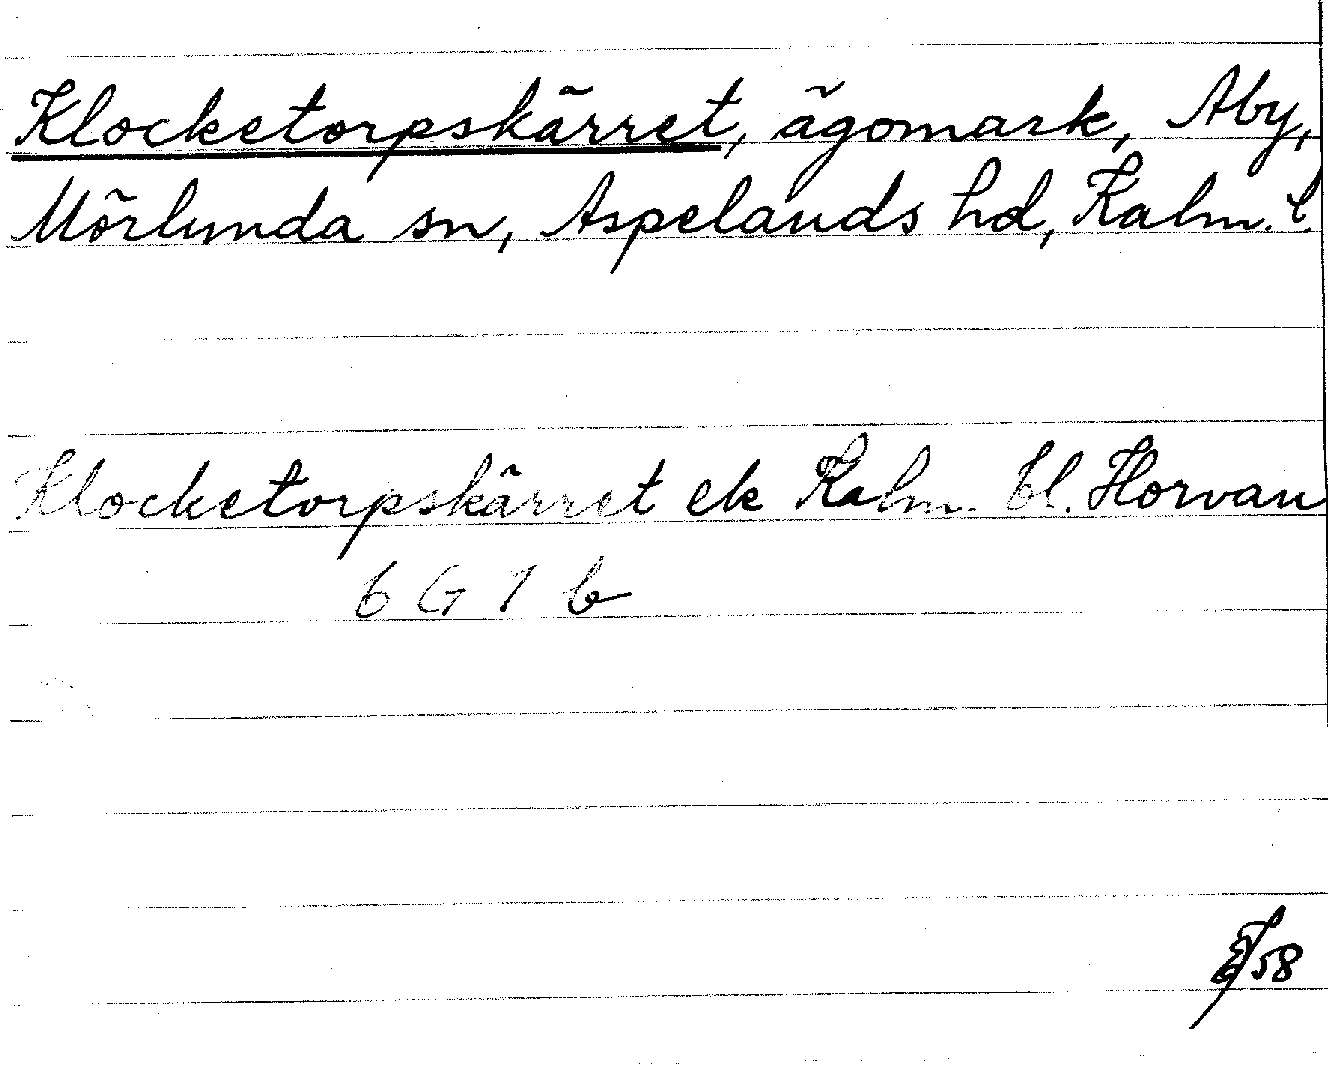 Klocketorpskärret, ägomark, Åby,
Mörlunda sn, Aspelands hd, Kalm. l.
Klocketorpskärret ek Kalm. bl. Horvan
6 G 1 b
58